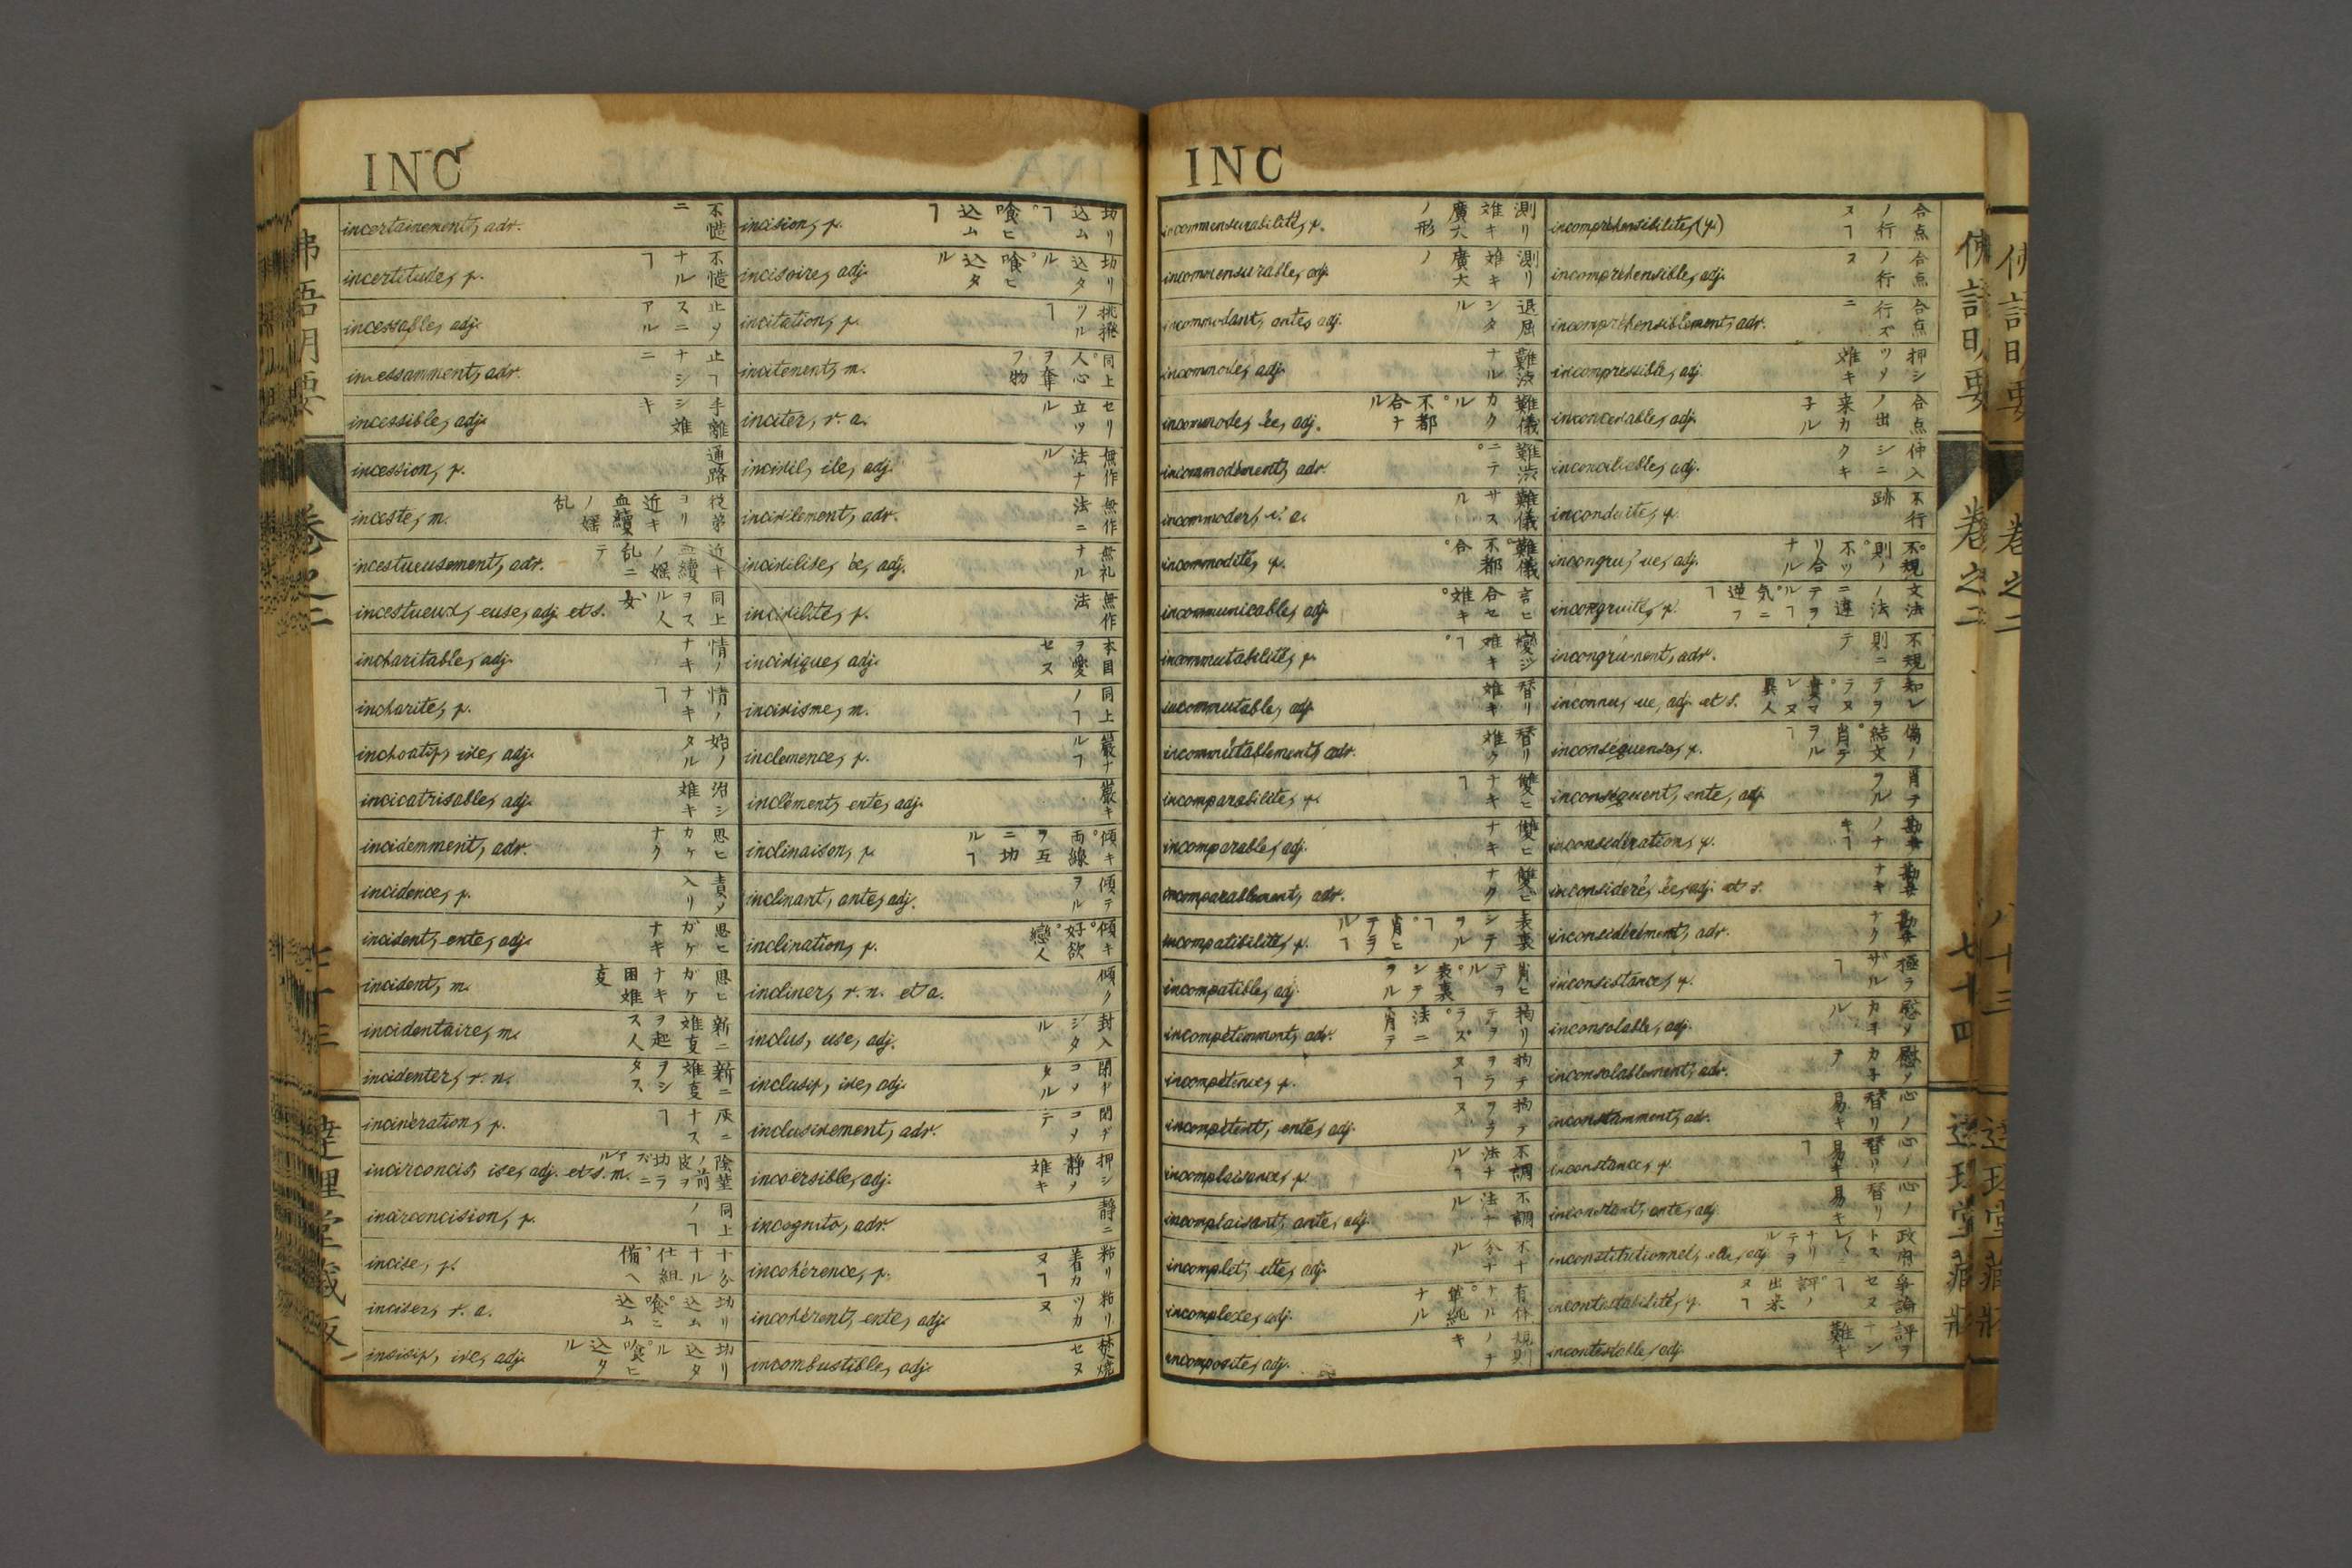 INC
incertainement, adv. 不慥ニ
incertitude, f. 不慥ナルヿ
incessable, adj. 止ヿニスアル
incessamment, adv. 止ヿナシニ
incessible, adj. 手離シ難キ
incession, f. 通路
inceste, m. 従弟ヨリ近キ血續ノ婬乱
incestueusement, adv. 近キ血續ノ婬乱ニテ
incestueux, euse, adj. et s. 同上ヲスル人
incharitable, adj. 情ノナキ
incharité, f. 情ノナキヿ
inchoatif, ive, adj. 始ノタル
incicatrisable, adj. 治シ難キ
incidemment, adv. 思ヒカケナク
incidence, f.
incident, ente, adj. 思ヒガケナキ
incident, m. 思ヒガケナキ困難
incidentaire, m. 新ニ難事ヲ起ス人
incidenter, v. n. 新ニ難事ヲシタス
incinération, f. 灰ニナスヿ
incirconcis, ise, adj. et s. m. 陰莖ノ前皮ヲ切ラズニアル
incirconcision, f. 同上ノヿ
incise, f.
inciser, v. a. 切リ込ム。喰ヒ込ム
incisif, ive, adj. 切リ込タル。喰ヒ込タル
incision, f. 切リ込ムヿ。喰ヒ込ムヿ
incisoire, adj. 切リ込タル。喰ヒ込タル
incitation, f. 挑撥ツルヿ
incitement, m. 同上。人心ヲ奪フ物
inciter, v. a. セリ立ツル
incivil, ile, adj. 無作法ナル
incivilement, adv. 無作法ニ
incivilisé, ée, adj. 無礼ナル
incivilité, f. 無作法
incivique, adj. 本國ヲ愛セヌ
incivisme, m. 同上ノヿ
inclémence, f. 嚴ナルヿ
inclément, ente, adj. 嚴キ
inclinaison, f. 傾キ。両線ヲ互ニ切ルヿ
inclinant, ante, adj. 傾テヲル
inclination, f. 傾キ。好欲。戀人
incliner, v. n. et a. 傾ク
inclus, use, adj. 封入ジタル
inclusif, ive, adj. 閉ヂコメタル
inclusivement, adv. 閉ヂコメテ
incoërsible, adj. 押シ静メ難キ
incognito, adv. 静ニ
incohérence, f. 粘リ着カヌヿ
incohérent, ente, adj. 粘リツカヌ
incombustible, adj. 焚焼セヌ
INC
incommensurabilité, f. 測リ難キ廣大ノ形
incommensurable, adj. 測リ難キ廣大ノ
incommodant, ante, adj. 退屈シタル
incommode, adj. 難渋ナル
incommodé, ée, adj. 難儀カクル。不都合ナル
incommodément, adv. 難渋ニテ。
incommoder, v. a. 難儀サスル
incommodité, f. 難儀。不都合。
incommunicable, adj. 言ヒ合セ難キ。
incommutabilité, f. 變ジ難キヿ。
incommutable, adj. 替リ難キ
incommutablement, adv. 替リ難ク
incomparabilité, f. 雙ヒナキヿ
incomparable, adj. 雙ヒナキ
incomparablement, adv. 雙ヒナク
incompatibilité, f. 表裏シテヲルヿ。背ヒテヲルヿ
incompatible, adj. 背ヒテヲル。表裏シテヲル
incompétemment, adv. 拘リテヲラズ。法ニ背テ
incompétence, f. 拘テヲラヌヿ
incompétent, ente, adj. 拘テヲラヌ
incomplaisance, f. 不調法ナルヿ
incomplaisant, ante, adj. 不調法ナル
incomplet, ette, adj. 不十分ナル
incomplexe, adj. 單純ナル
incomposite, adj. 規則ノナキ
incompréhensibilité, (f.) 合点ノ行ヌヿ
incompréhensible, adj. 合点ノ行ヌ
incompréhensiblement, adv. 合点行ズニ
incompressible, adj. 押シツメ難キ
inconcevable, adj. 合点ノ出来カ子ル
inconciliable, adj. 仲入シニクキ
inconduite, f. 不行跡
incongru, ue, adj. 不規則ノ。不ツリ合ナル
incongruité, f. 文法ノ法ニ違テヲルヿ。気ニ逆フヿ
incongrûment, adv. 不規則ニテ
inconnu, ue, adj. et s. 知レテヲラヌ。貴マレヌ異人
inconséquence, f.
inconséquent, ente, adj. 背テヲル
inconsidération, f. 勘弁ノナキヿ
inconsidéré, ée, adj. et s. 勘弁ナキ
inconsidérément, adv. 勘弁ナク
inconsistance, f. 極ラザルヿ
inconsolable, adj. 慰メカ子ル
inconsolablement, adv. 慰メカ子テ
inconstamment, adv. 心ノ替リ易キ
inconstance, f. 心ノ替リ易キヿ
inconstant, ante, adj. 心ノ替リ易キ
inconstitutionnel, elle, adj.
incontestabilité, f. 爭論セヌヿ。評ノ出来ヌヿ
incontestable, adj. 評ヲナシ難キ
卷之二
七十四
達理堂藏